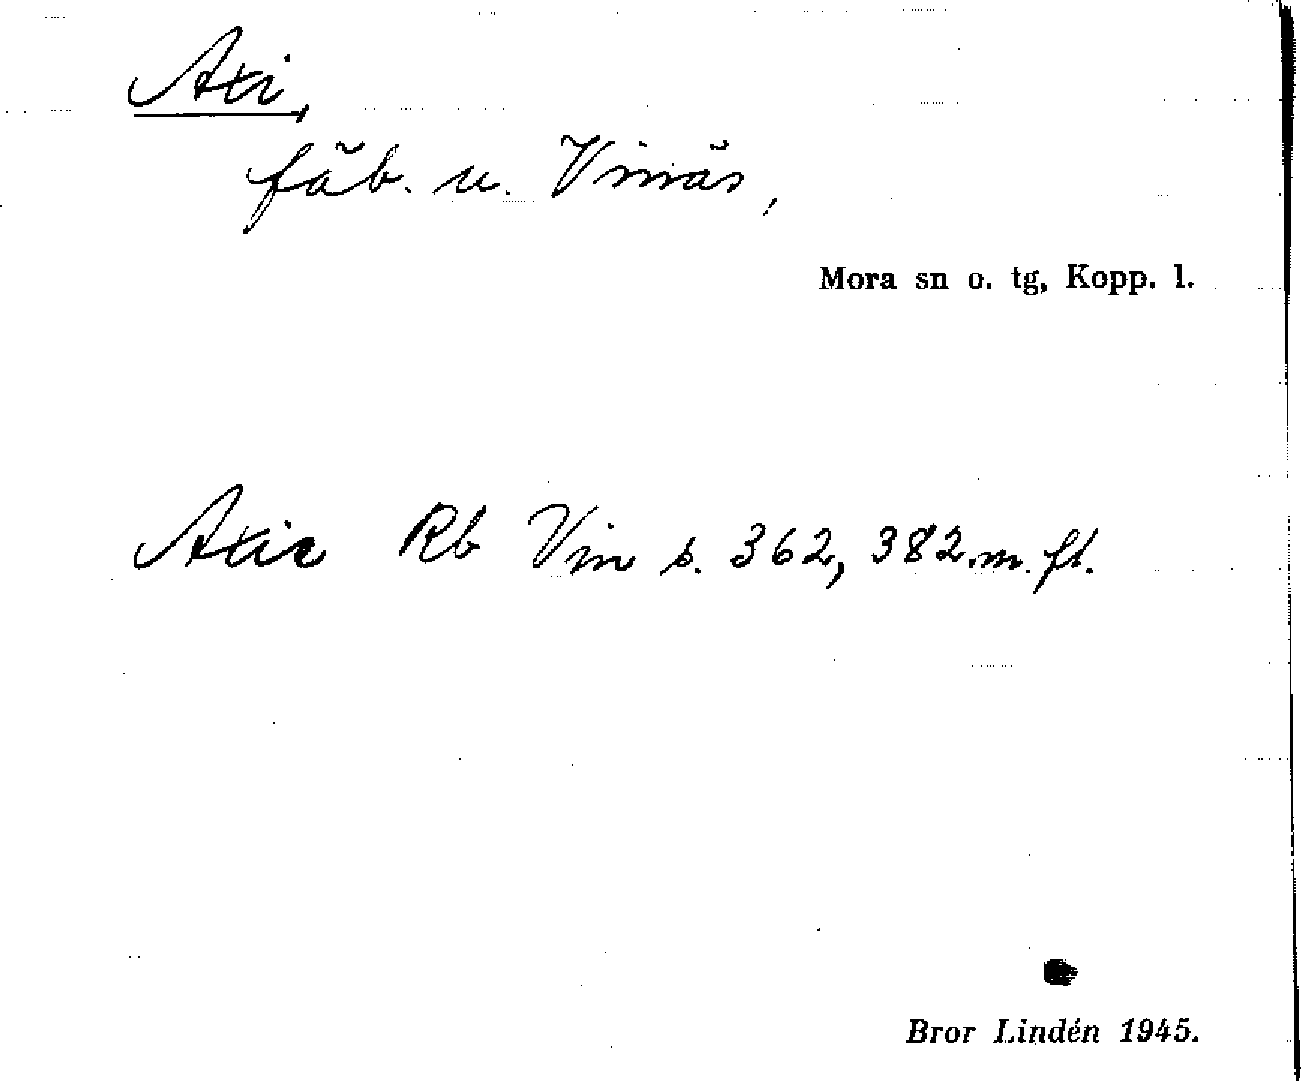 Axi,
fäb. u. Vinäs,
Mora sn o. tg, Kopp. l.
Axie Rb Vin s. 362, 382 m. fl.
Bror Lindén 1945.